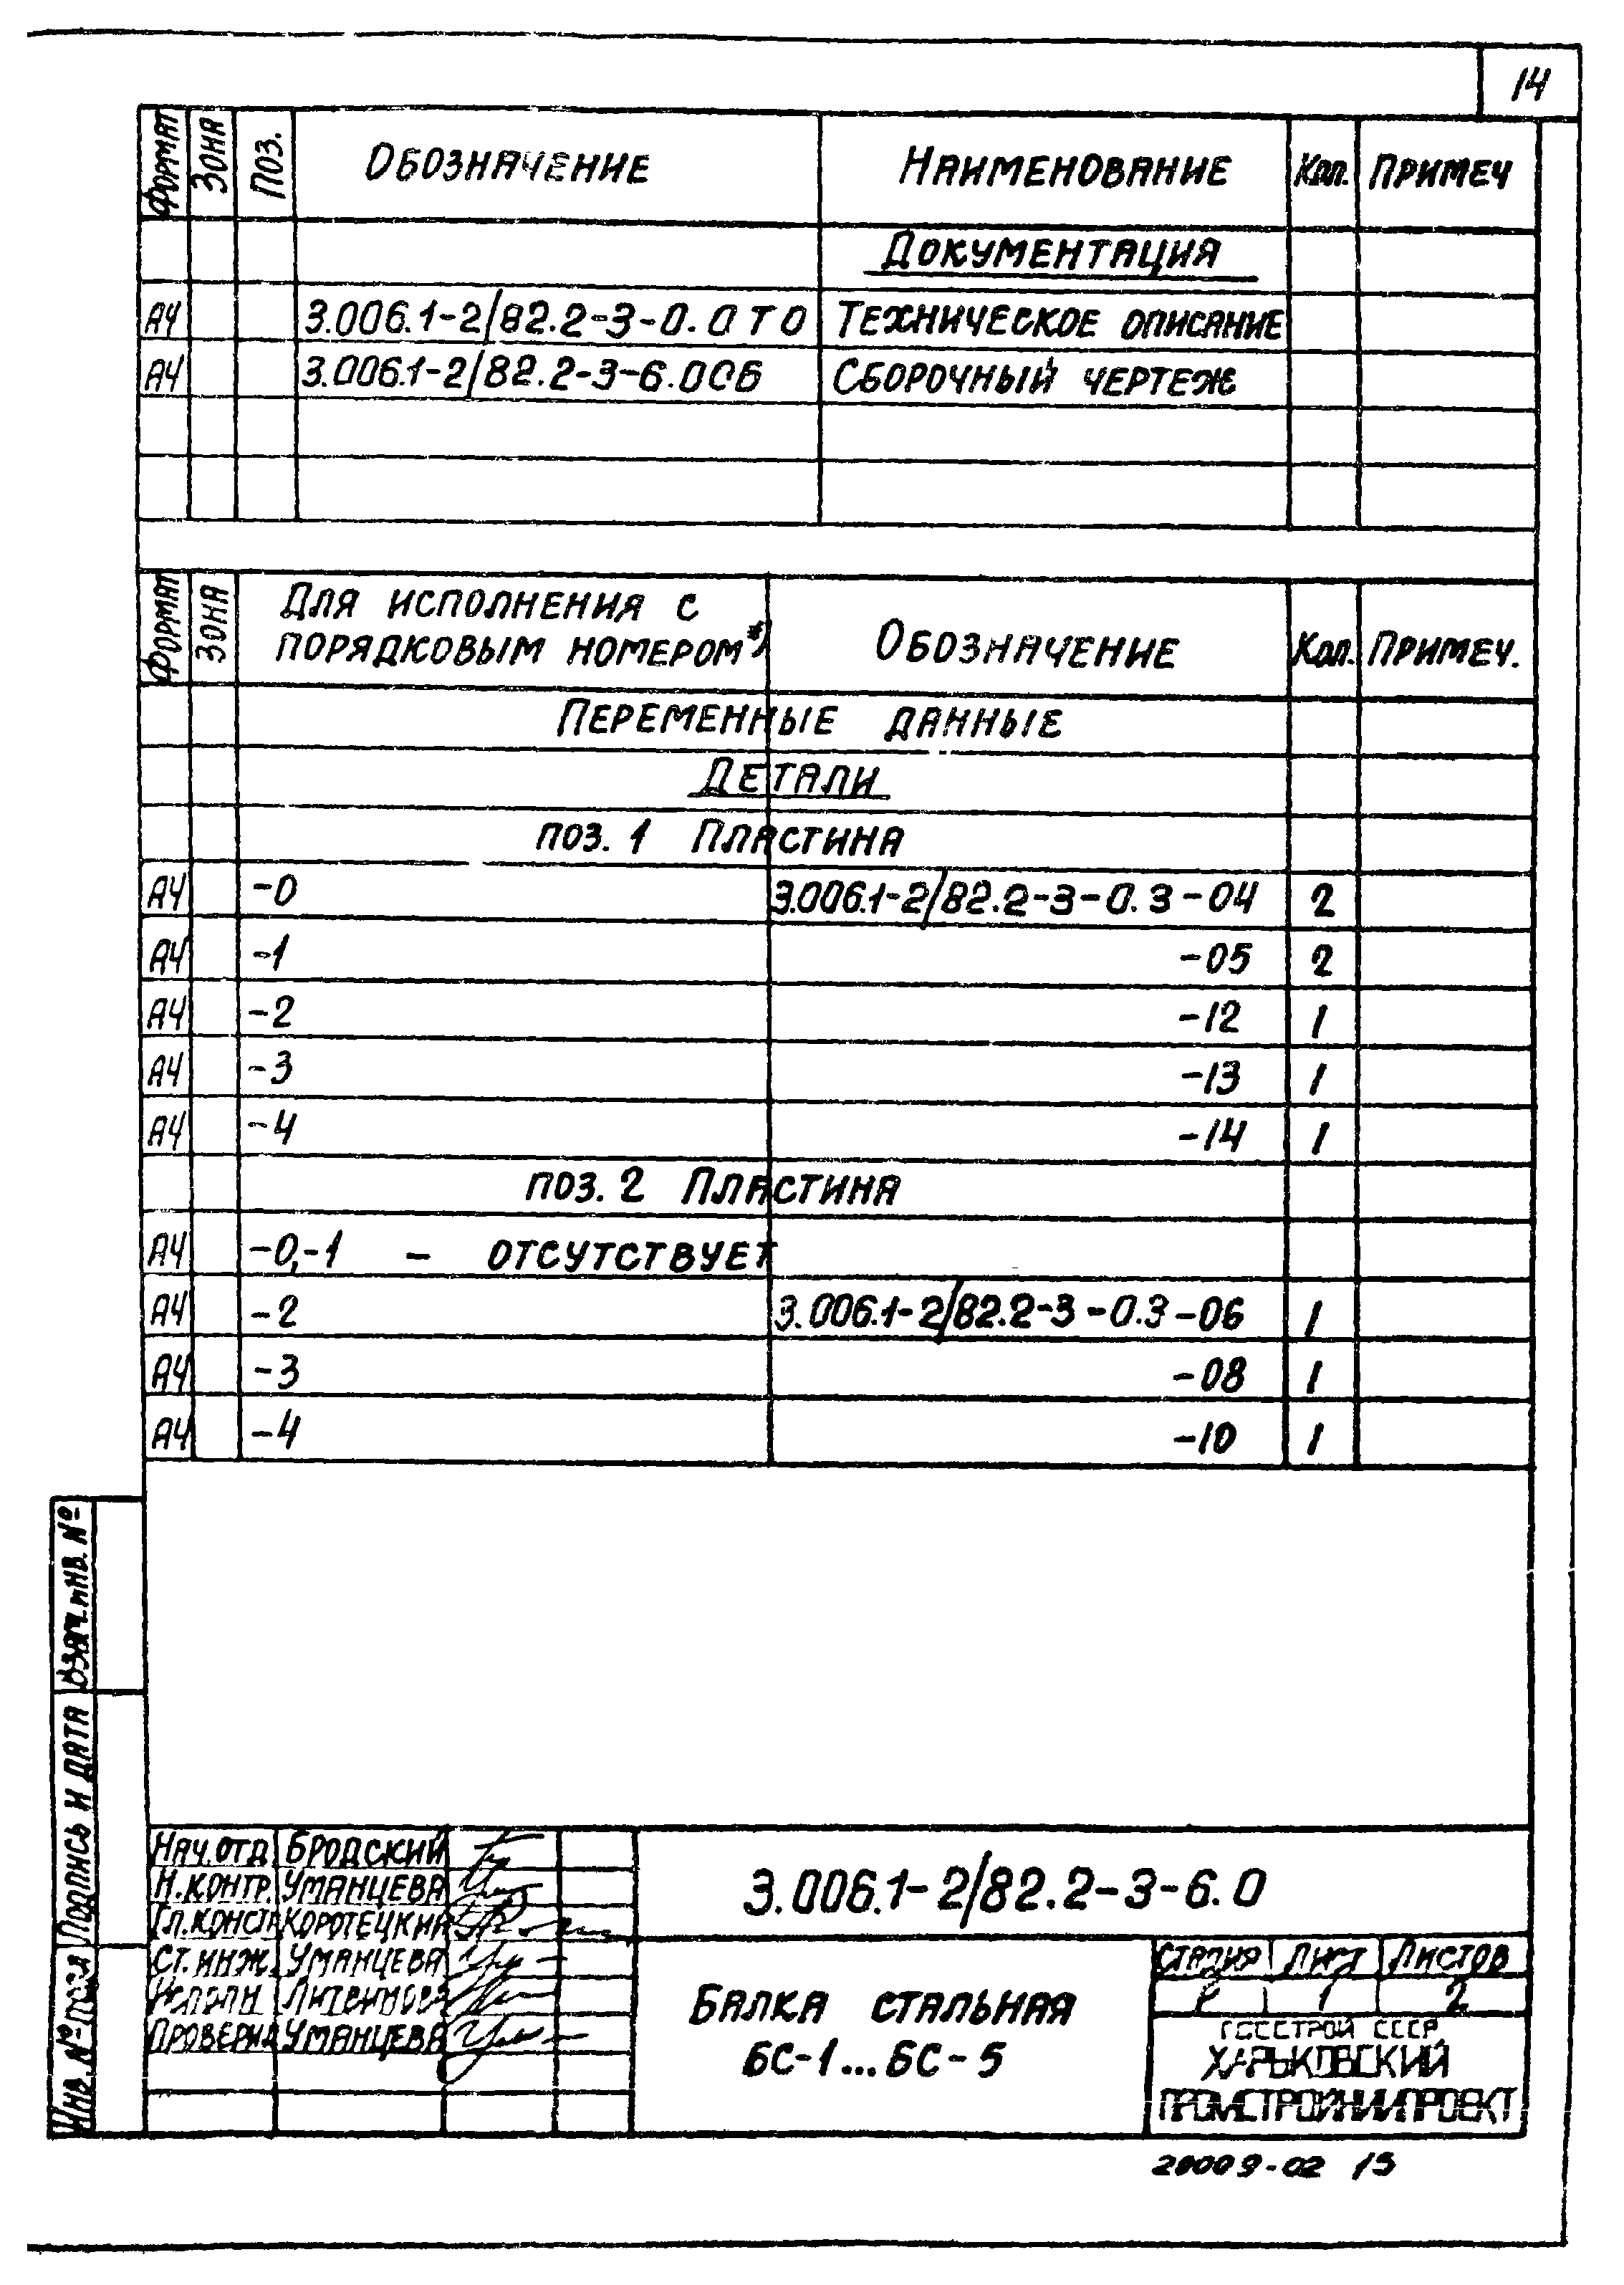 14
Формат Зона Поз. Обозначение Наименование Кол. Примеч
Документация
А4 3.006.1-2/82.2-3-0.0ТО Техническое описание
А4 3.006.1-2/82.2-3-6.0СБ Сборочный чертеж
Формат Зона Для исполнения с порядковым номером*) Обозначение Кол. Примеч.
Переменные данные
Детали
поз. 1 Пластина
А4 -0 3.006.1-2/82.2-3-0.3-04 2
А4 -1 -05 2
А4 -2 -12 1
А4 -3 -13 1
А4 -4 -14 1
поз. 2 Пластина
А4 -0,-1 - отсутствует
А4 -2 3.006.1-2/82.2-3-0.3-06 1
А4 -3 -08 1
А4 -4 -10 1
Взам. инв. №
Подпись и дата
Инв. № подл
Нач. отд. Бродский
Н. контр. Уманцева
Гл. констр Коротецкий
Ст. инж. Уманцева
Исполн. Литвинова
Проверил Уманцева
3.006.1-2/82.2-3-6.0
Балка стальная
БС-1...БС-5
Стадия Лист Листов
Р 1 2
Госстрой СССР
Харьковский
Промстройниипроект
20009-02 15